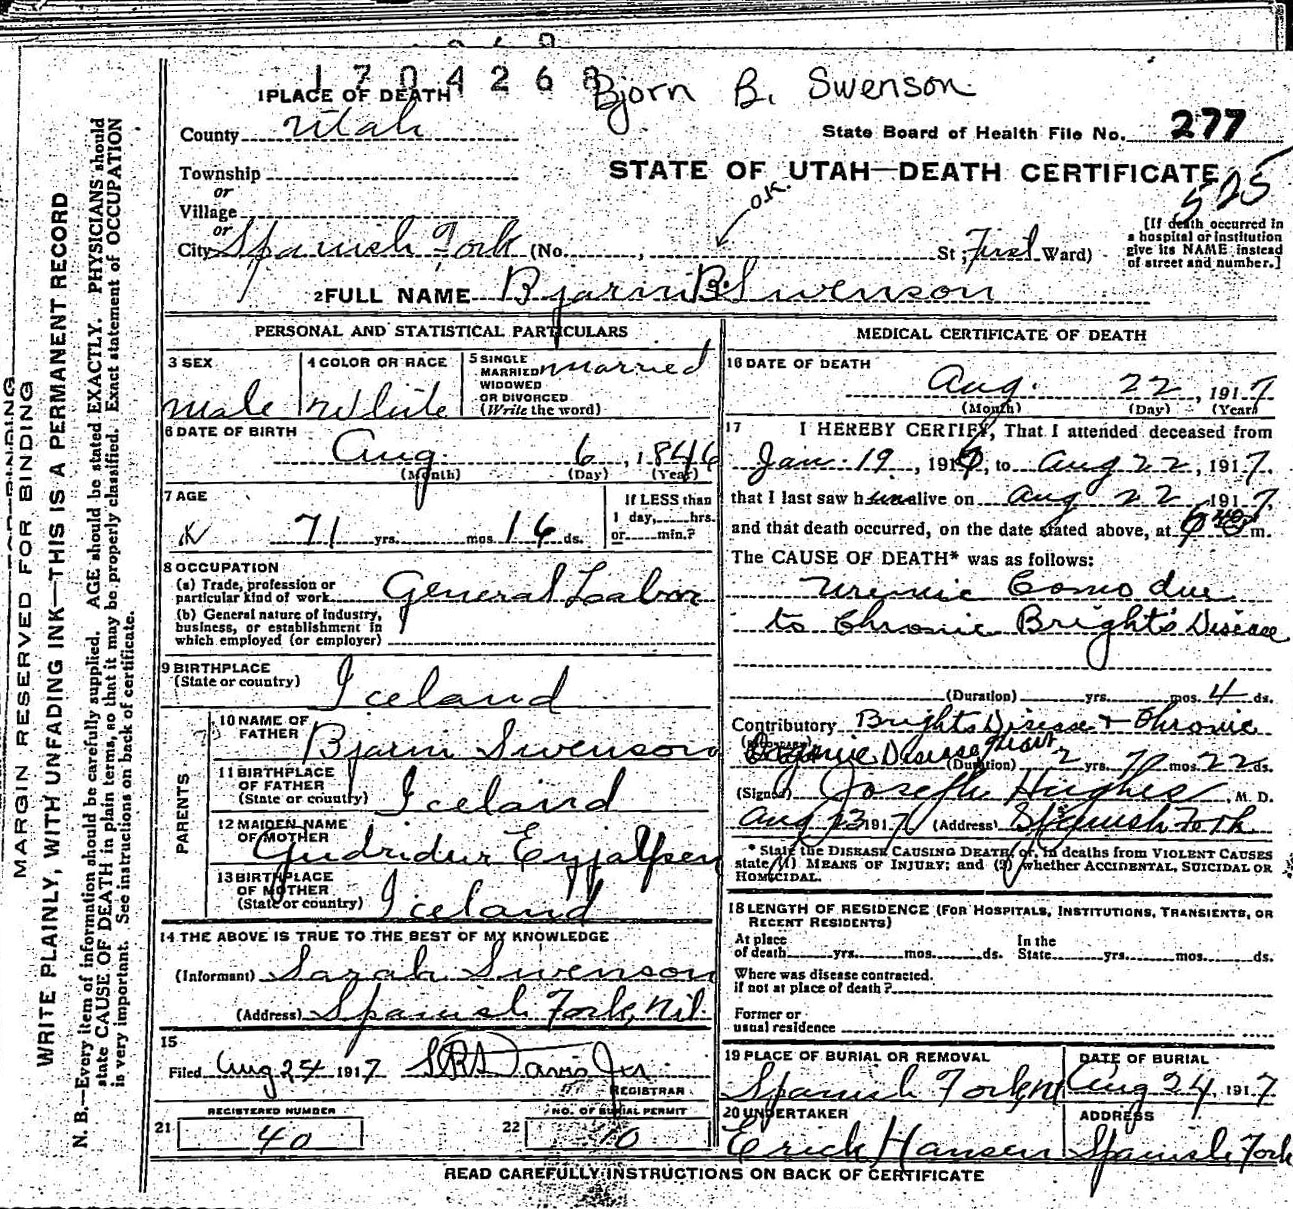 1704268
Bjorn B. Swenson
1 PLACE OF DEATH
County Utah
State Board of Health File No. 277
Township
STATE OF UTAH—DEATH CERTIFICATE
525
or
O.K.
Village
or
City Spanish Fork (No. , St; First Ward)
[If death occurred in a hospital or institution give its NAME instead of street and number.]
2 FULL NAME Bjarni B. Swenson
PERSONAL AND STATISTICAL PARTICULARS
3 SEX
male
4 COLOR OR RACE
White
5 SINGLE MARRIED WIDOWED OR DIVORCED (Write the word)
married
6 DATE OF BIRTH
Aug. 6, 1846
(Month) (Day) (Year)
7 AGE
71 yrs. mos. 16 ds.
If LESS than 1 day, hrs. or min.?
8 OCCUPATION
(a) Trade, profession or particular kind of work General Labor
(b) General nature of industry, business, or establishment in which employed (or employer)
9 BIRTHPLACE
(State or country) Iceland
PARENTS
10 NAME OF FATHER Bjarni Swenson
11 BIRTHPLACE OF FATHER (State or country) Iceland
12 MAIDEN NAME OF MOTHER Gudridur
13 BIRTHPLACE OF MOTHER (State or country) Iceland
14 THE ABOVE IS TRUE TO THE BEST OF MY KNOWLEDGE
(Informant) Sarah Swenson
(Address) Spanish Fork,
15
Filed Aug 24 1917
REGISTRAR
REGISTERED NUMBER
21 40
NO. OF BURIAL PERMIT
22 10
MEDICAL CERTIFICATE OF DEATH
16 DATE OF DEATH
Aug. 22, 1917
(Month) (Day) (Year)
17 I HEREBY CERTIFY, That I attended deceased from
Jan. 19, 191 , to Aug 22, 1917,
that I last saw him alive on Aug 22, 1917,
and that death occurred, on the date stated above, at m.
The CAUSE OF DEATH* was as follows:
Uremic Coma due
to Chronic Bright's Disease
(Duration) yrs. mos. 4 ds.
Contributory Brights Disease + Chronic
Organic Disease Heart
(Duration) 2 yrs. mos. 22 ds.
(Signed) Joseph Hughes, M. D.
Aug 23 1917 (Address) Spanish Fork
* State the DISEASE CAUSING DEATH, or, in deaths from VIOLENT CAUSES
state (1) MEANS OF INJURY; and (2) whether ACCIDENTAL, SUICIDAL OR
HOMICIDAL.
18 LENGTH OF RESIDENCE (FOR HOSPITALS, INSTITUTIONS, TRANSIENTS, OR
RECENT RESIDENTS)
At place of death yrs. mos. ds. In the State yrs. mos. ds.
Where was disease contracted.
if not at place of death?
Former or
usual residence
19 PLACE OF BURIAL OR REMOVAL
Spanish Fork
DATE OF BURIAL
Aug 24, 1917
20 UNDERTAKER
Erick Hansen
ADDRESS
Spanish Fork
READ CAREFULLY INSTRUCTIONS ON BACK OF CERTIFICATE
MARGIN RESERVED FOR BINDING
WRITE PLAINLY, WITH UNFADING INK—THIS IS A PERMANENT RECORD
N. B.—Every item of information should be carefully supplied. AGE should be stated EXACTLY. PHYSICIANS should
state CAUSE OF DEATH in plain terms, so that it may be properly classified. Exact statement of OCCUPATION
is very important. See instructions on back of certificate.